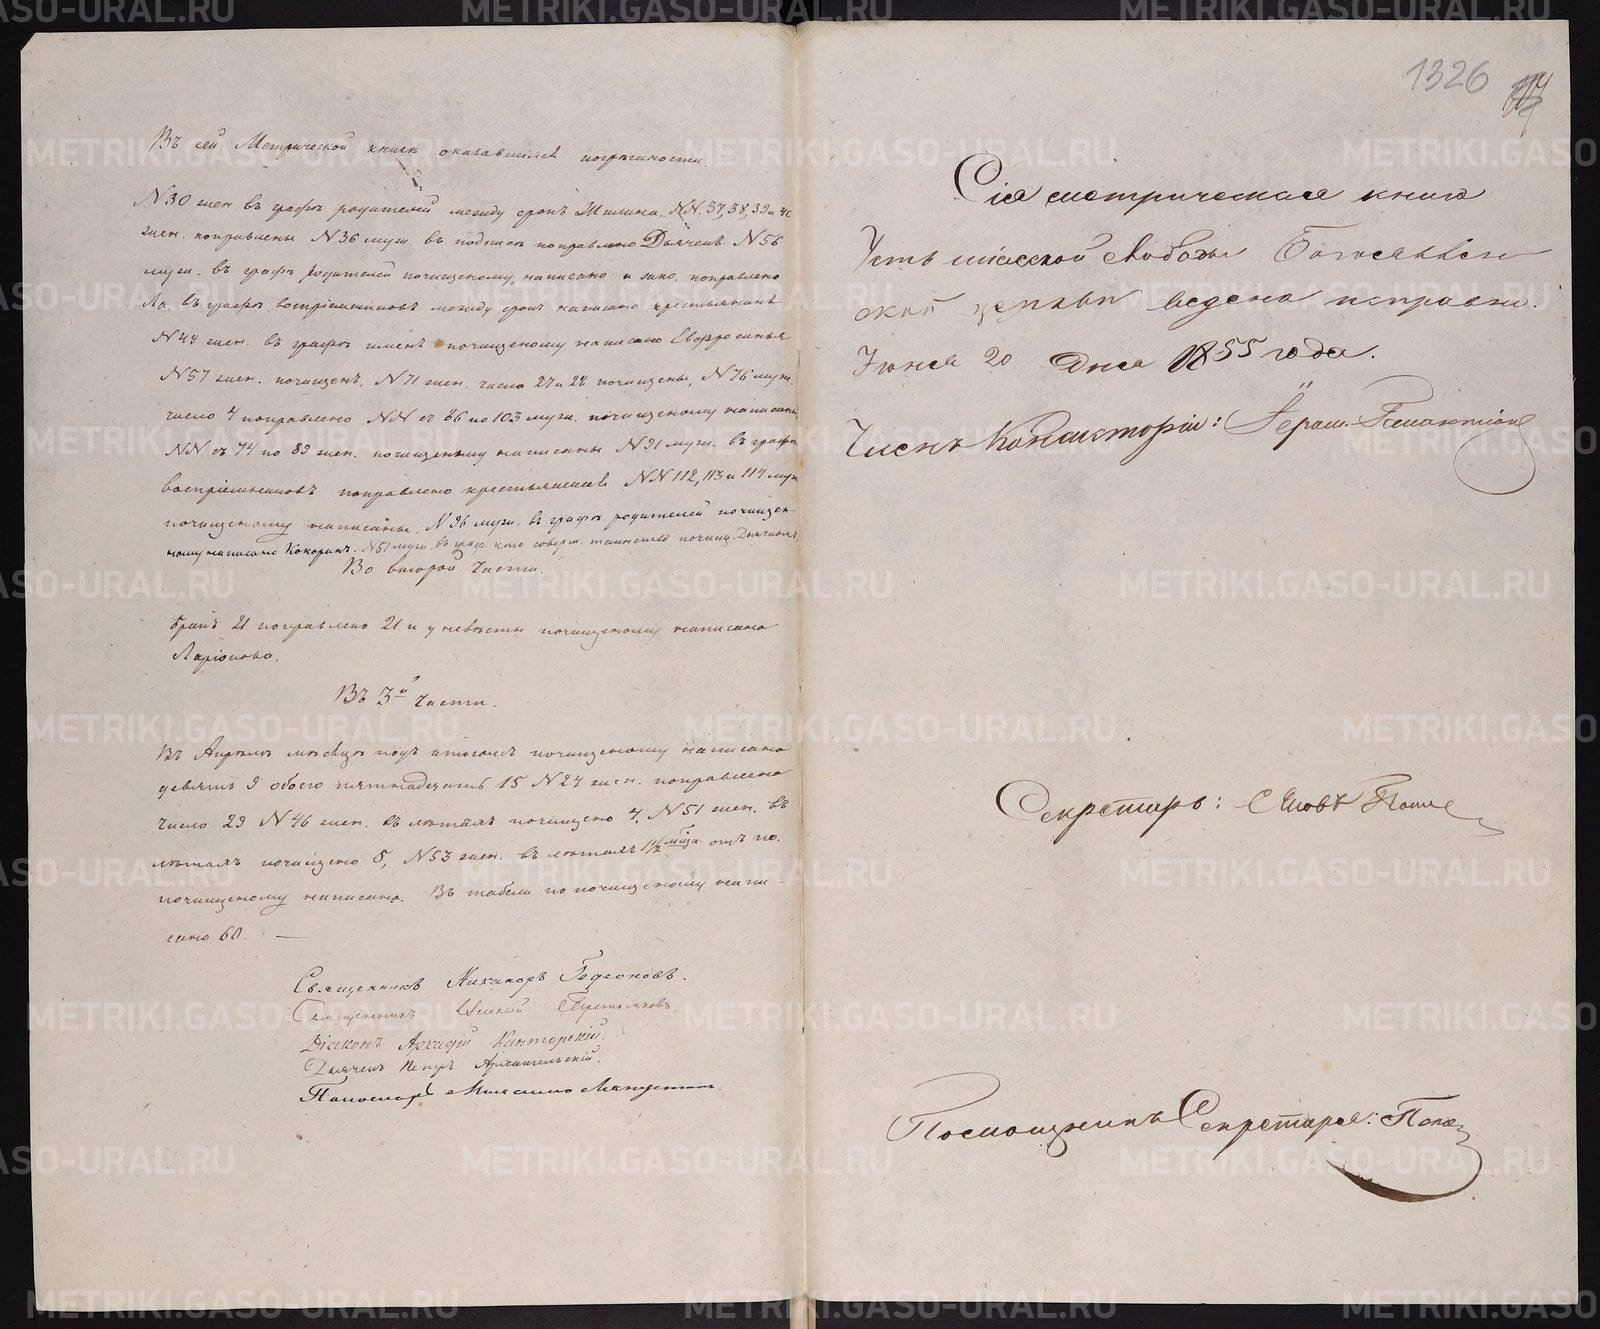 Въ сей Метрической книгѣ оказавшіяся погрѣшности
N 30 жен. въ графѣ родителей между строкъ Жилина, NN. 37, 38, 39 и 40
жен. поправлены N 36 муж. въ подписи поправлено Дьячекъ N 56
муж. въ графѣ родителей почищеному написано и зако. поправлено
въ графѣ воспріемниковъ между строкъ написано крестьянинъ
N 49 жен. въ графѣ именъ почищеному написано Евфросинья
N 57 жен. почищенъ, N 71 жен. число 27 и 28 почищены, N 76 муж.
число 4 поправлено NN съ 86 по 103 муж. почищеному написаны
NN съ 74 по 89 жен. почищеному написаны N 91 муж. въ графѣ
воспріемниковъ поправлено крестьянинъ NN 112, 113 и 114 муж
почищеному написаны. N 96 муж. въ графѣ родителей почищен-
ному написано Кокоринъ. N 51 муж. въ граф. кто соверш. таинство почищ. Дьячекъ
Во второй части.
бракъ 21 поправлено 21 и у невѣсты почищеному написано
Ларіонова.
Въ 3й части.
Въ Апрѣлѣ мѣсяцѣ подъ итогомъ почищеному написано
девять 9 обоего пятнадцать 15 N 24 жен. поправлено
число 29 N 46 жен. въ лѣтахъ почищено 4, N 51 жен. въ
лѣтахъ почищено 5, N 53 жен. въ лѣтахъ 1 1/2 мѣся. отъ по.
почищеному написано. Въ табели по почищеному напи-
сано 60. —
Священникъ Никаноръ Гедеоновъ.
Священникъ
Діаконъ Аркадій Канторскій.
Дьячекъ Петръ Архангельскій.
Пономарь
1326
Сія метрическая книга
Усть міасской слободы Богоявлен
ской церкви ведена исправно.
Іюня 20 дня 1855 года.
Членъ Консисторіи: Іерам.
Секретарь:
Помощникъ Секретаря: Попов
METRIKI.GASO-URAL.RU